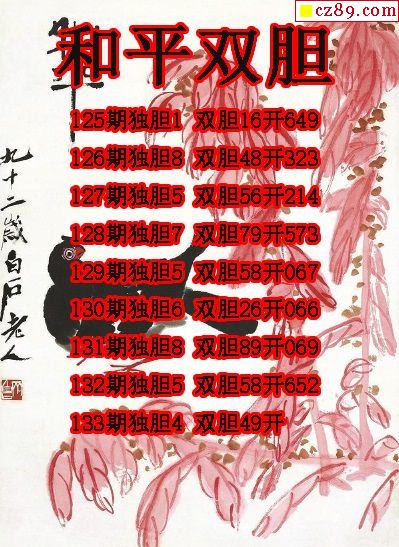 cz89.com
和平双胆
125期独胆1 双胆16开649
126期独胆8 双胆48开323
127期独胆5 双胆56开214
128期独胆7 双胆79开573
129期独胆5 双胆58开067
130期独胆6 双胆26开066
131期独胆8 双胆89开069
132期独胆5 双胆58开652
133期独胆4 双胆49开
九十二岁白石老人